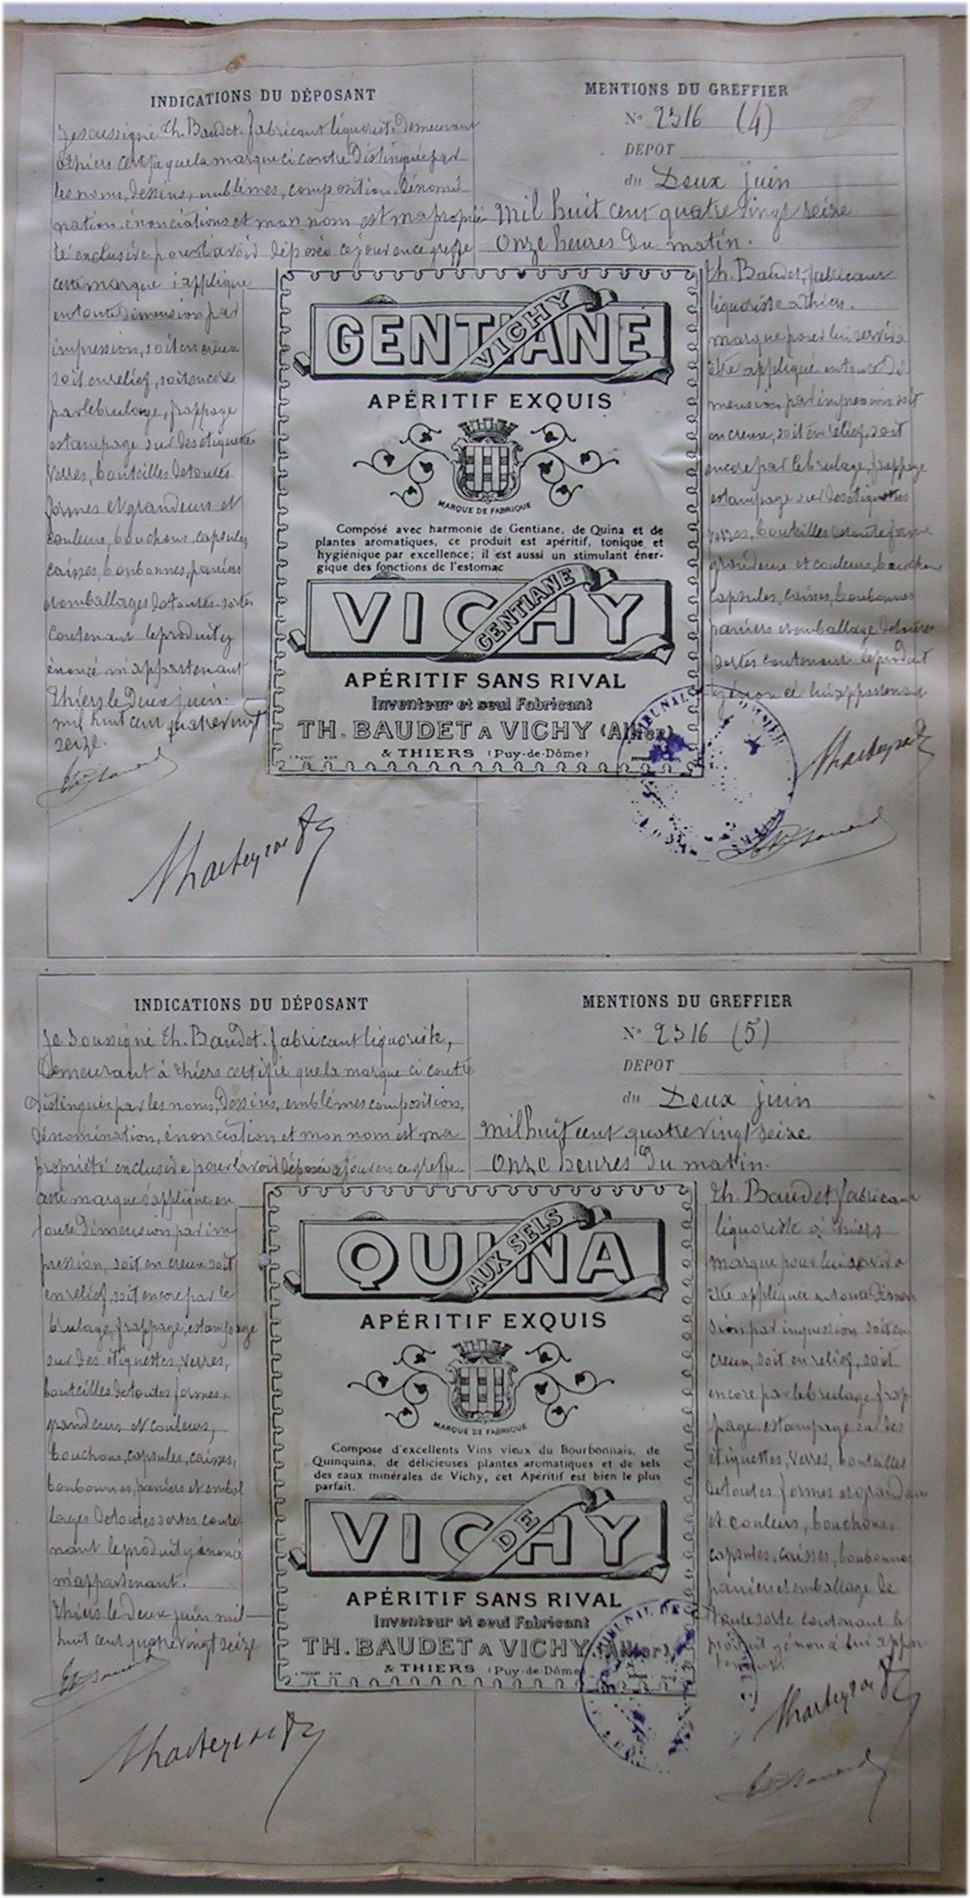 INDICATIONS DU DÉPOSANT
Je soussigné Th. Baudet fabricant liquoriste demeurant
à Thiers certifie que la marque ci contre distinguée par
les noms, dessins, emblèmes, composition, dénomi
nation, énonciations et mon nom est ma proprié
té exclusive pour l'avoir déposée ce jour en ce greffe
cette marque s'applique
en toute dimension par
impression, soit en creux
soit en relief, soit encore
par le brulage, frappage
estampage sur des étiquettes
verres, bouteilles de toutes
formes et grandeurs et
couleurs, bouchons, capsules
caisses, bonbonnes, paniers
et emballages de toutes sortes
contenant le produit y
énoncé m'appartenant
Thiers le Deux juin
mil huit cent quatre vingt
seize.
MENTIONS DU GREFFIER
No 2316 (4)
DEPOT
du Deux juin
mil huit cent quatre vingt seize
onze heures du matin.
Th. Baudet, fabricant
liquoriste à Thiers.
marque pour lui servir à
être appliqué en toute di
mension par impression soit
en creux, soit en relief, soit
encore par le brulage, frappage
estampage sur des étiquettes
verres, bouteilles de toute forme
grandeurs et couleurs, bouchons
capsules, caisses, bonbonnes
paniers et emballage de toutes
sortes contenant le produit
y énoncé lui appartenant
GENTIANE
VICHY
APÉRITIF EXQUIS
MARQUE DE FABRIQUE
Composé avec harmonie de Gentiane, de Quina et de
plantes aromatiques, ce produit est apéritif, tonique et
hygiénique par excellence; il est aussi un stimulant éner-
gique des fonctions de l'estomac
VICHY
GENTIANE
APÉRITIF SANS RIVAL
Inventeur et seul Fabricant
TH. BAUDET A VICHY (Allier)
& THIERS (Puy-de-Dôme)
INDICATIONS DU DÉPOSANT
Je soussigné Th. Baudet fabricant liquoriste,
demeurant à Thiers certifie que la marque ci contre
distinguée par les noms, dessins, emblèmes composition,
dénomination, énonciation et mon nom est ma
propriété exclusive pour l'avoir déposée ce jour en ce greffe
cette marque s'applique en
toute dimension par im
pression, soit en creux soit
en relief, soit encore par le
brulage, frappage, estampage
sur des étiquettes, verres,
bouteilles de toutes formes,
grandeurs et couleurs,
bouchons, capsules, caisses,
bonbonnes, paniers et embal
lages de toutes sortes conte
nant le produit y énoncé
m'appartenant.
Thiers le deux juin mil
huit cent quatre vingt seize
MENTIONS DU GREFFIER
No 2316 (5)
DEPOT
du Deux juin
mil huit cent quatre vingt seize
onze heures du matin.
Th. Baudet fabricant
liquoriste à Thiers
marque pour lui servir à
être appliquée en toute dimen
sion par impression soit en
creux, soit en relief, soit
encore par le brulage, frap
page, estampage sur des
étiquettes, verres, bouteilles
de toutes formes et grandeurs
et couleurs, bouchons,
capsules, caisses, bonbonnes
paniers et emballage de
toute sorte contenant le
produit y énoncé lui appar
tenant
QUINA
AUX SELS
APÉRITIF EXQUIS
MARQUE DE FABRIQUE
Compose d'excellents Vins vieux du Bourbonnais, de
Quinquina, de délicieuses plantes aromatiques et de sels
des eaux minérales de Vichy, cet Apéritif est bien le plus
parfait.
VICHY
DE
APÉRITIF SANS RIVAL
Inventeur et seul Fabricant
TH. BAUDET A VICHY (Allier)
& THIERS (Puy-de-Dôme)